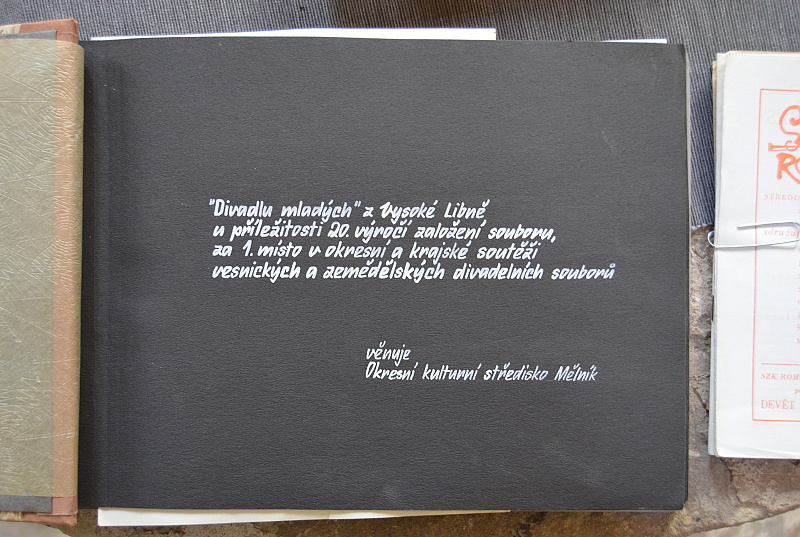 "Divadlu mladých" z Vysoké Libně
u příležitosti 20. výročí založení souboru,
za 1. místo v okresní a krajské soutěži
vesnických a zemědělských divadelních souborů
věnuje
Okresní kulturní středisko Mělník
SZK ROH
DEVĚT